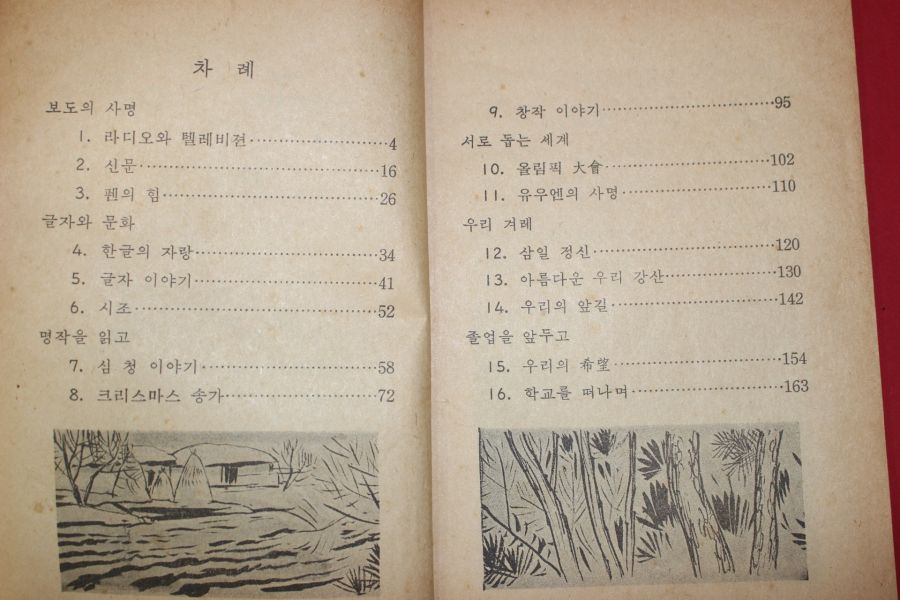 차 례
보도의 사명
1. 라디오와 텔레비젼 4
2. 신문 16
3. 펜의 힘 26
글자와 문화
4. 한글의 자랑 34
5. 글자 이야기 41
6. 시조 52
명작을 읽고
7. 심 청 이야기 58
8. 크리스마스 송가 72
9. 창작 이야기 95
서로 돕는 세계
10. 올림픽 大會 102
11. 유우엔의 사명 110
우리 겨레
12. 삼일 정신 120
13. 아름다운 우리 강산 130
14. 우리의 앞길 142
졸업을 앞두고
15. 우리의 希望 154
16. 학교를 떠나며 163